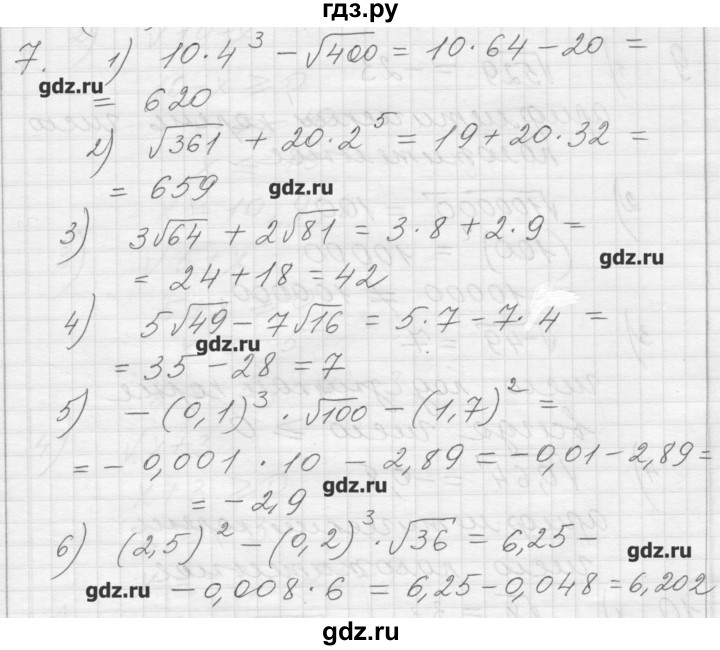 гдз.ру
7. 1) 10·4³ − √400 = 10·64 − 20 =
gdz.ru
= 620
2) √361 + 20·2⁵ = 19 + 20·32 =
= 659 gdz.ru
3) 3√64 + 2√81 = 3·8 + 2·9 =
gdz.ru
= 24 + 18 = 42
4) 5√49 − 7√16 = 5·7 − 7·4 =
gdz.ru
= 35 − 28 = 7
5) −(0,1)³ · √100 − (1,7)² =
= −0,001 · 10 − 2,89 = −0,01 − 2,89 =
gdz.ru
= −2,9
6) (2,5)² − (0,2)³ · √36 = 6,25 −
gdz.ru
gdz.ru − 0,008·6 = 6,25 − 0,048 = 6,202
gdz.ru